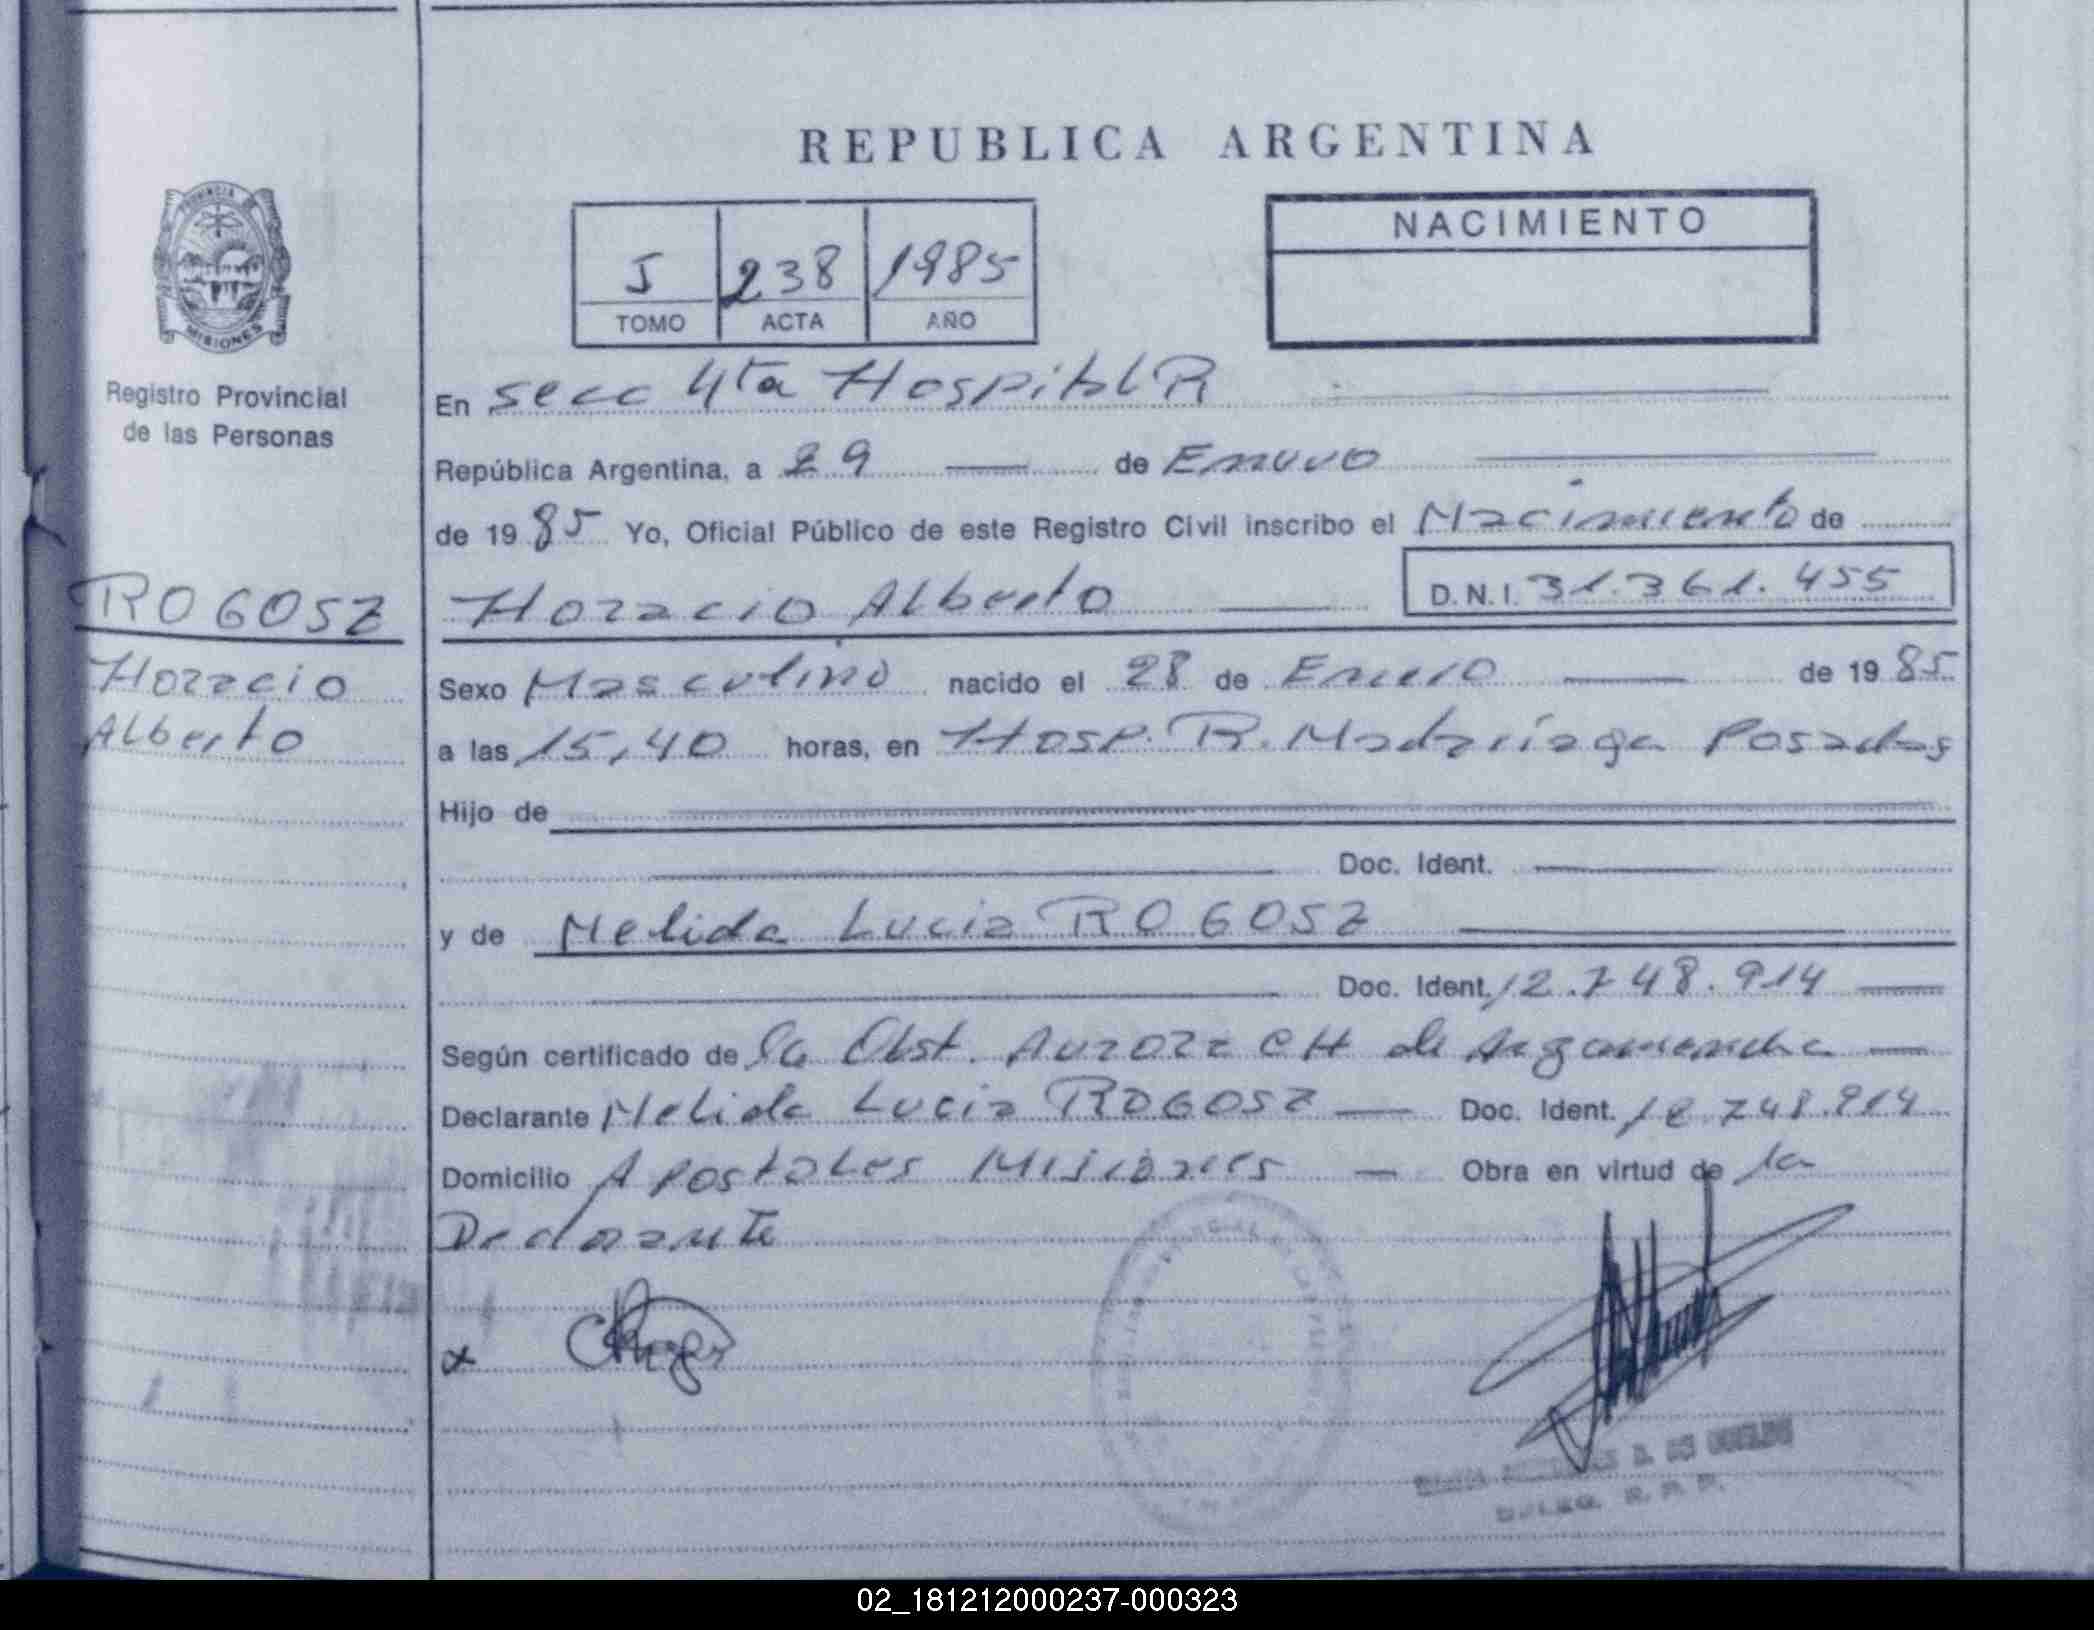 REPUBLICA ARGENTINA
PROVINCIA DE
MISIONES
Registro Provincial
de las Personas
J 238 1985
TOMO ACTA AÑO
NACIMIENTO
En secc 4ta Hospital R
República Argentina, a 29 de Enero
de 1985 Yo, Oficial Público de este Registro Civil inscribo el Nacimiento de
ROGOSZ
Horacio
Alberto
Horacio Alberto D.N.I. 31.361.455
Sexo Masculino nacido el 28 de Enero de 1985
a las 15,40 horas, en Hosp. R. Madariaga Posadas
Hijo de
Doc. Ident.
y de Nelida Lucia ROGOSZ
Doc. Ident. 12.748.914
Según certificado de la Obst. Aurora CH de
Declarante Nelida Lucia ROGOSZ Doc. Ident. 12.748.914
Domicilio Apostoles Misiones Obra en virtud de la
Declarante
02_181212000237-000323